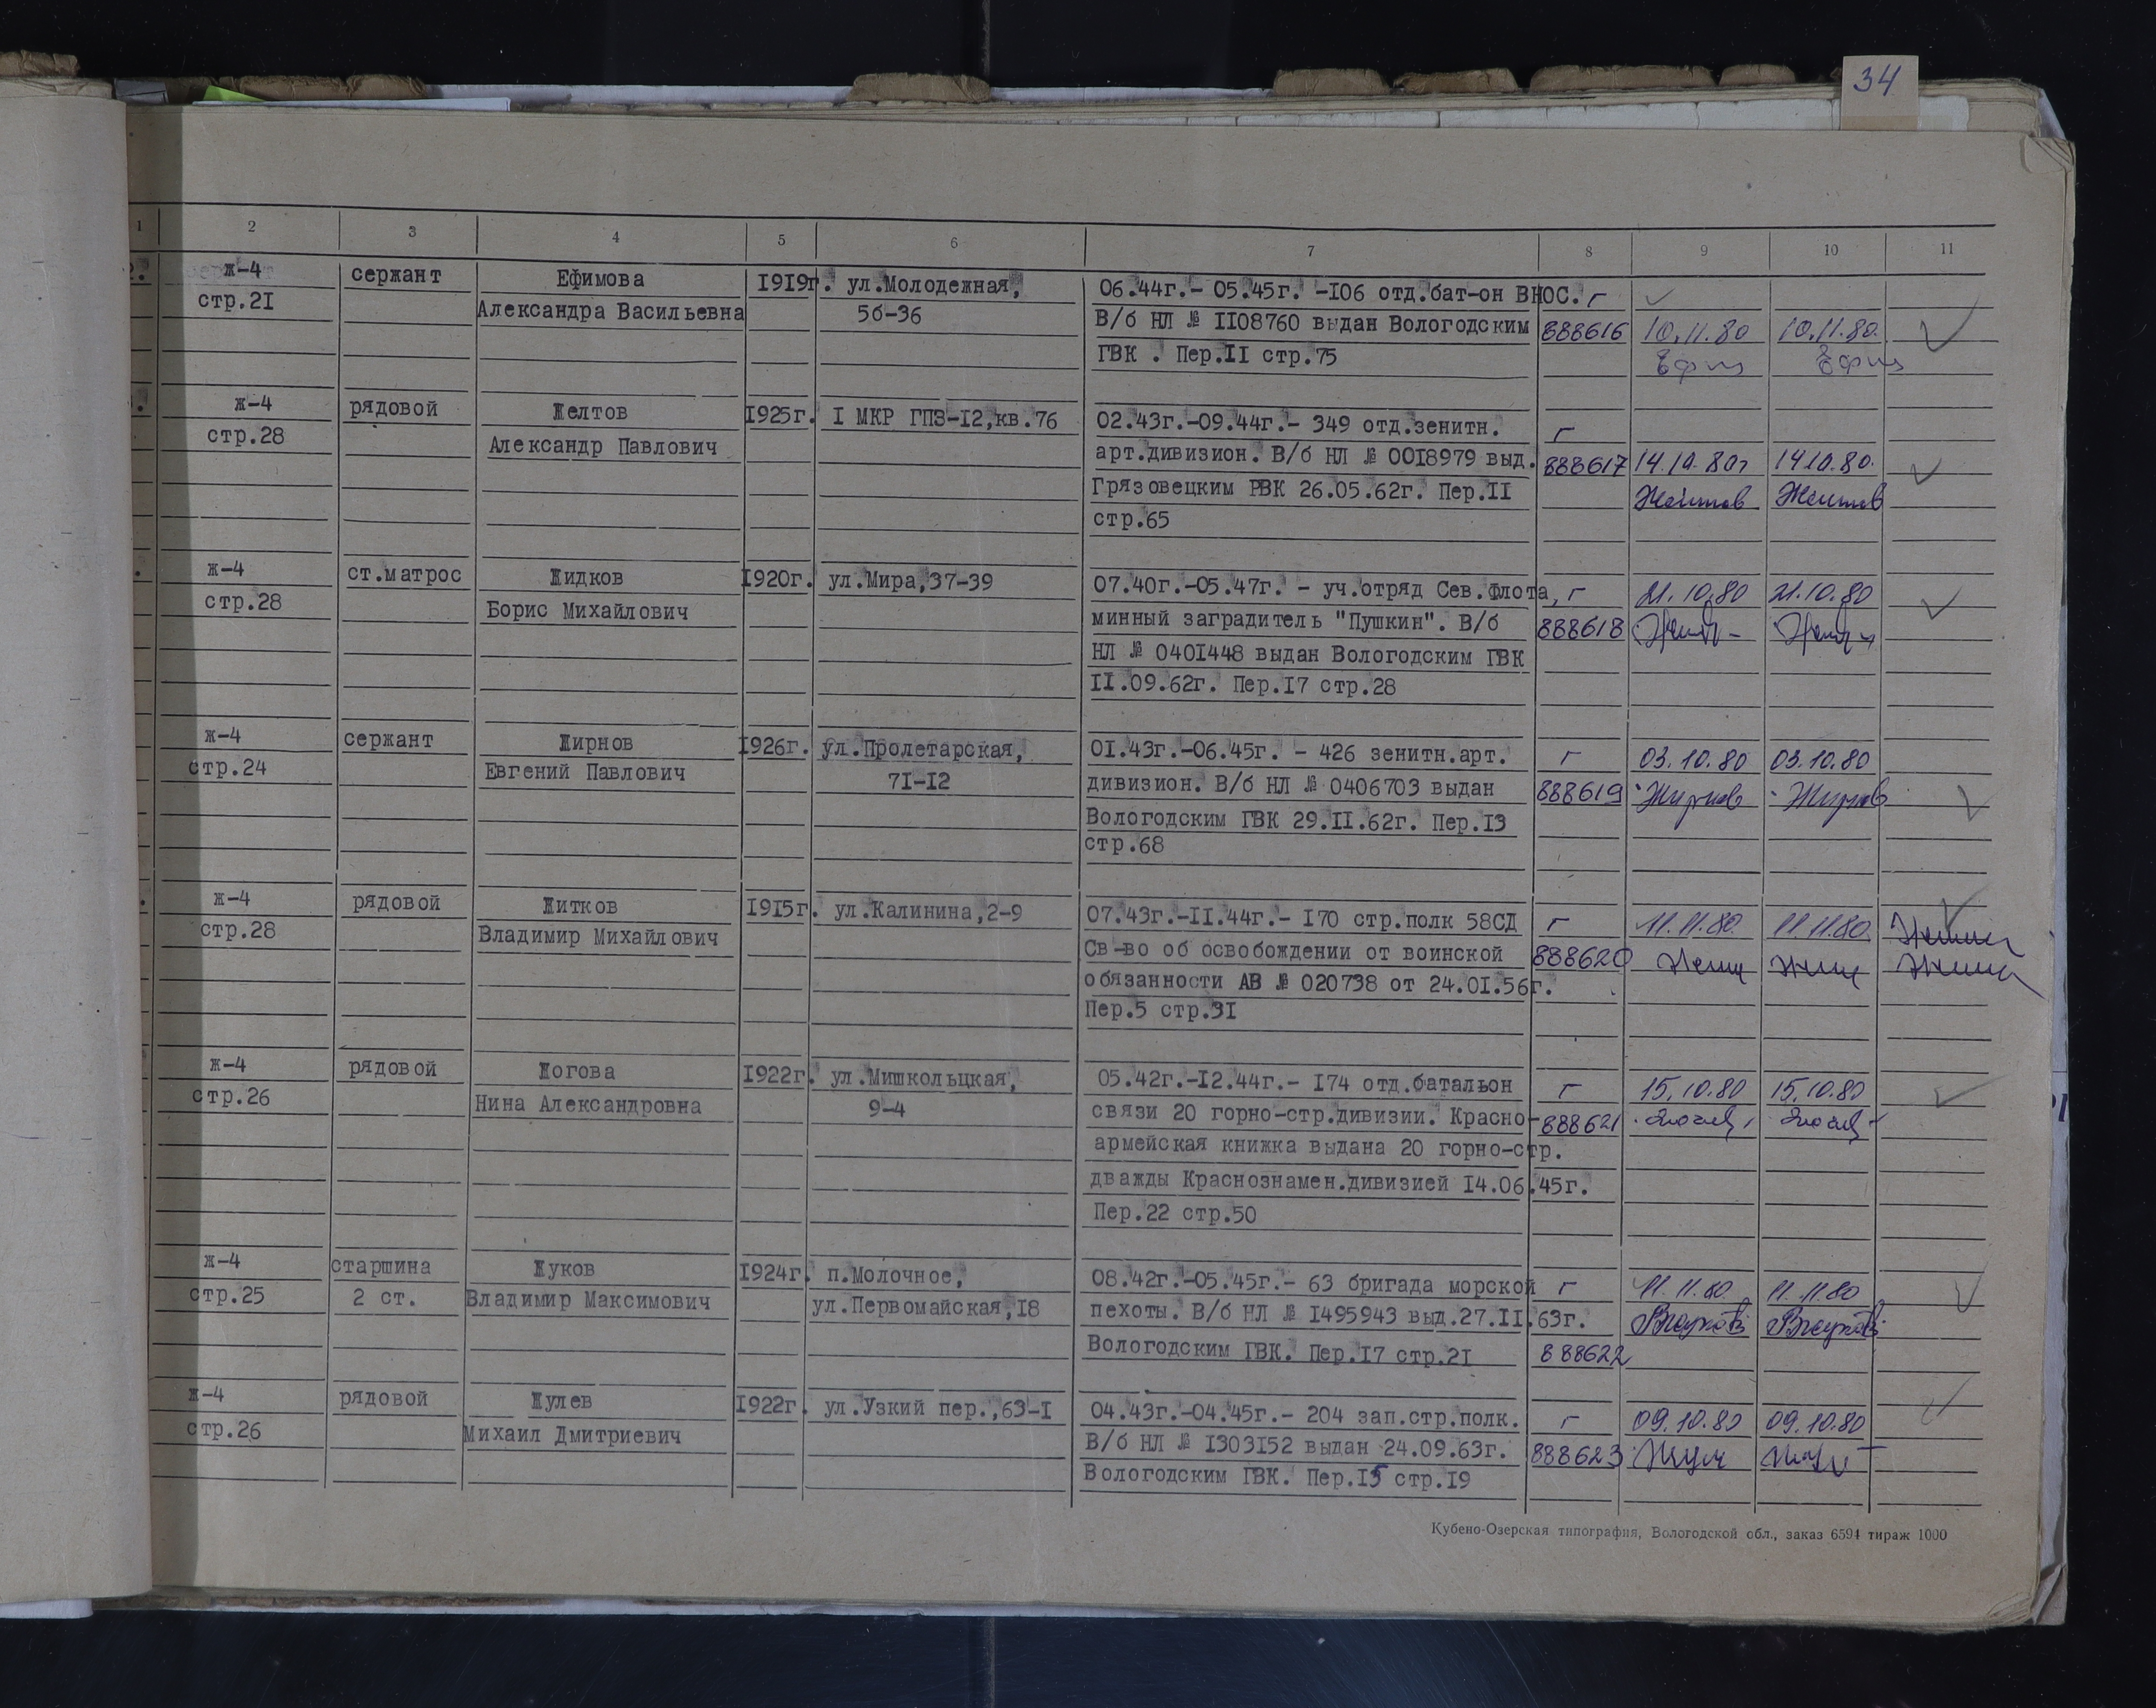 34
1 2 3 4 5 6 7 8 9 10 11
ж-4 сержант Ефимова 1919г. ул.Молодежная, 06.44г.- 05.45г. -106 отд.бат-он ВНОС. г
стр.21 Александра Васильевна 56-36 В/б НЛ № 1108760 выдан Вологодским 888616 10.11.80 10.11.80.
ГВК . Пер.II стр.75
ж-4 рядовой Желтов 1925г. I МКР ГПЗ-12,кв.76 02.43г.-09.44г.- 349 отд.зенитн. г
стр.28 Александр Павлович арт.дивизион. В/б НЛ № 0018979 выд. 888617 14.10.80г 14.10.80.
Грязовецким РВК 26.05.62г. Пер.II Желтов Желтов
стр.65
ж-4 ст.матрос Жидков 1920г. ул.Мира,37-39 07.40г.-05.47г. - уч.отряд Сев.флота, г 21.10.80 21.10.80
стр.28 Борис Михайлович минный заградитель "Пушкин". В/б 888618
НЛ № 0401448 выдан Вологодским ГВК
II.09.62г. Пер.17 стр.28
ж-4 сержант Жирнов 1926г. ул.Пролетарская, 01.43г.-06.45г. - 426 зенитн.арт. г 03.10.80 03.10.80
стр.24 Евгений Павлович 71-12 дивизион. В/б НЛ № 0406703 выдан 888619 Жирнов Жирнов
Вологодским ГВК 29.II.62г. Пер.13
стр.68
ж-4 рядовой Житков 1915г. ул.Калинина,2-9 07.43г.-II.44г.- 170 стр.полк 58СД г 11.11.80. 11.11.80.
стр.28 Владимир Михайлович Св-во об освобождении от воинской 888620
обязанности АВ № 020738 от 24.01.56г.
Пер.5 стр.31
ж-4 рядовой Жогова 1922г. ул.Мишкольцкая, 05.42г.-12.44г.- 174 отд.батальон г 15.10.80 15.10.80
стр.26 Нина Александровна 9-4 связи 20 горно-стр.дивизии. Красно- 888621
армейская книжка выдана 20 горно-стр.
дважды Краснознамен.дивизией 14.06.45г.
Пер.22 стр.50
ж-4 старшина Жуков 1924г. п.Молочное, 08.42г.-05.45г.- 63 бригада морской г 11.11.80 11.11.80
стр.25 2 ст. Владимир Максимович ул.Первомайская,18 пехоты. В/б НЛ № 1495943 выд.27.II.63г.
Вологодским ГВК. Пер.17 стр.21 888622
ж-4 рядовой Жулев 1922г. ул.Узкий пер.,63-1 04.43г.-04.45г.- 204 зап.стр.полк. г 09.10.80 09.10.80
стр.26 Михаил Дмитриевич В/б НЛ № 1303152 выдан 24.09.63г. 888623
Вологодским ГВК. Пер.15 стр.19
Кубено-Озерская типография, Вологодской обл., заказ 6594 тираж 1000